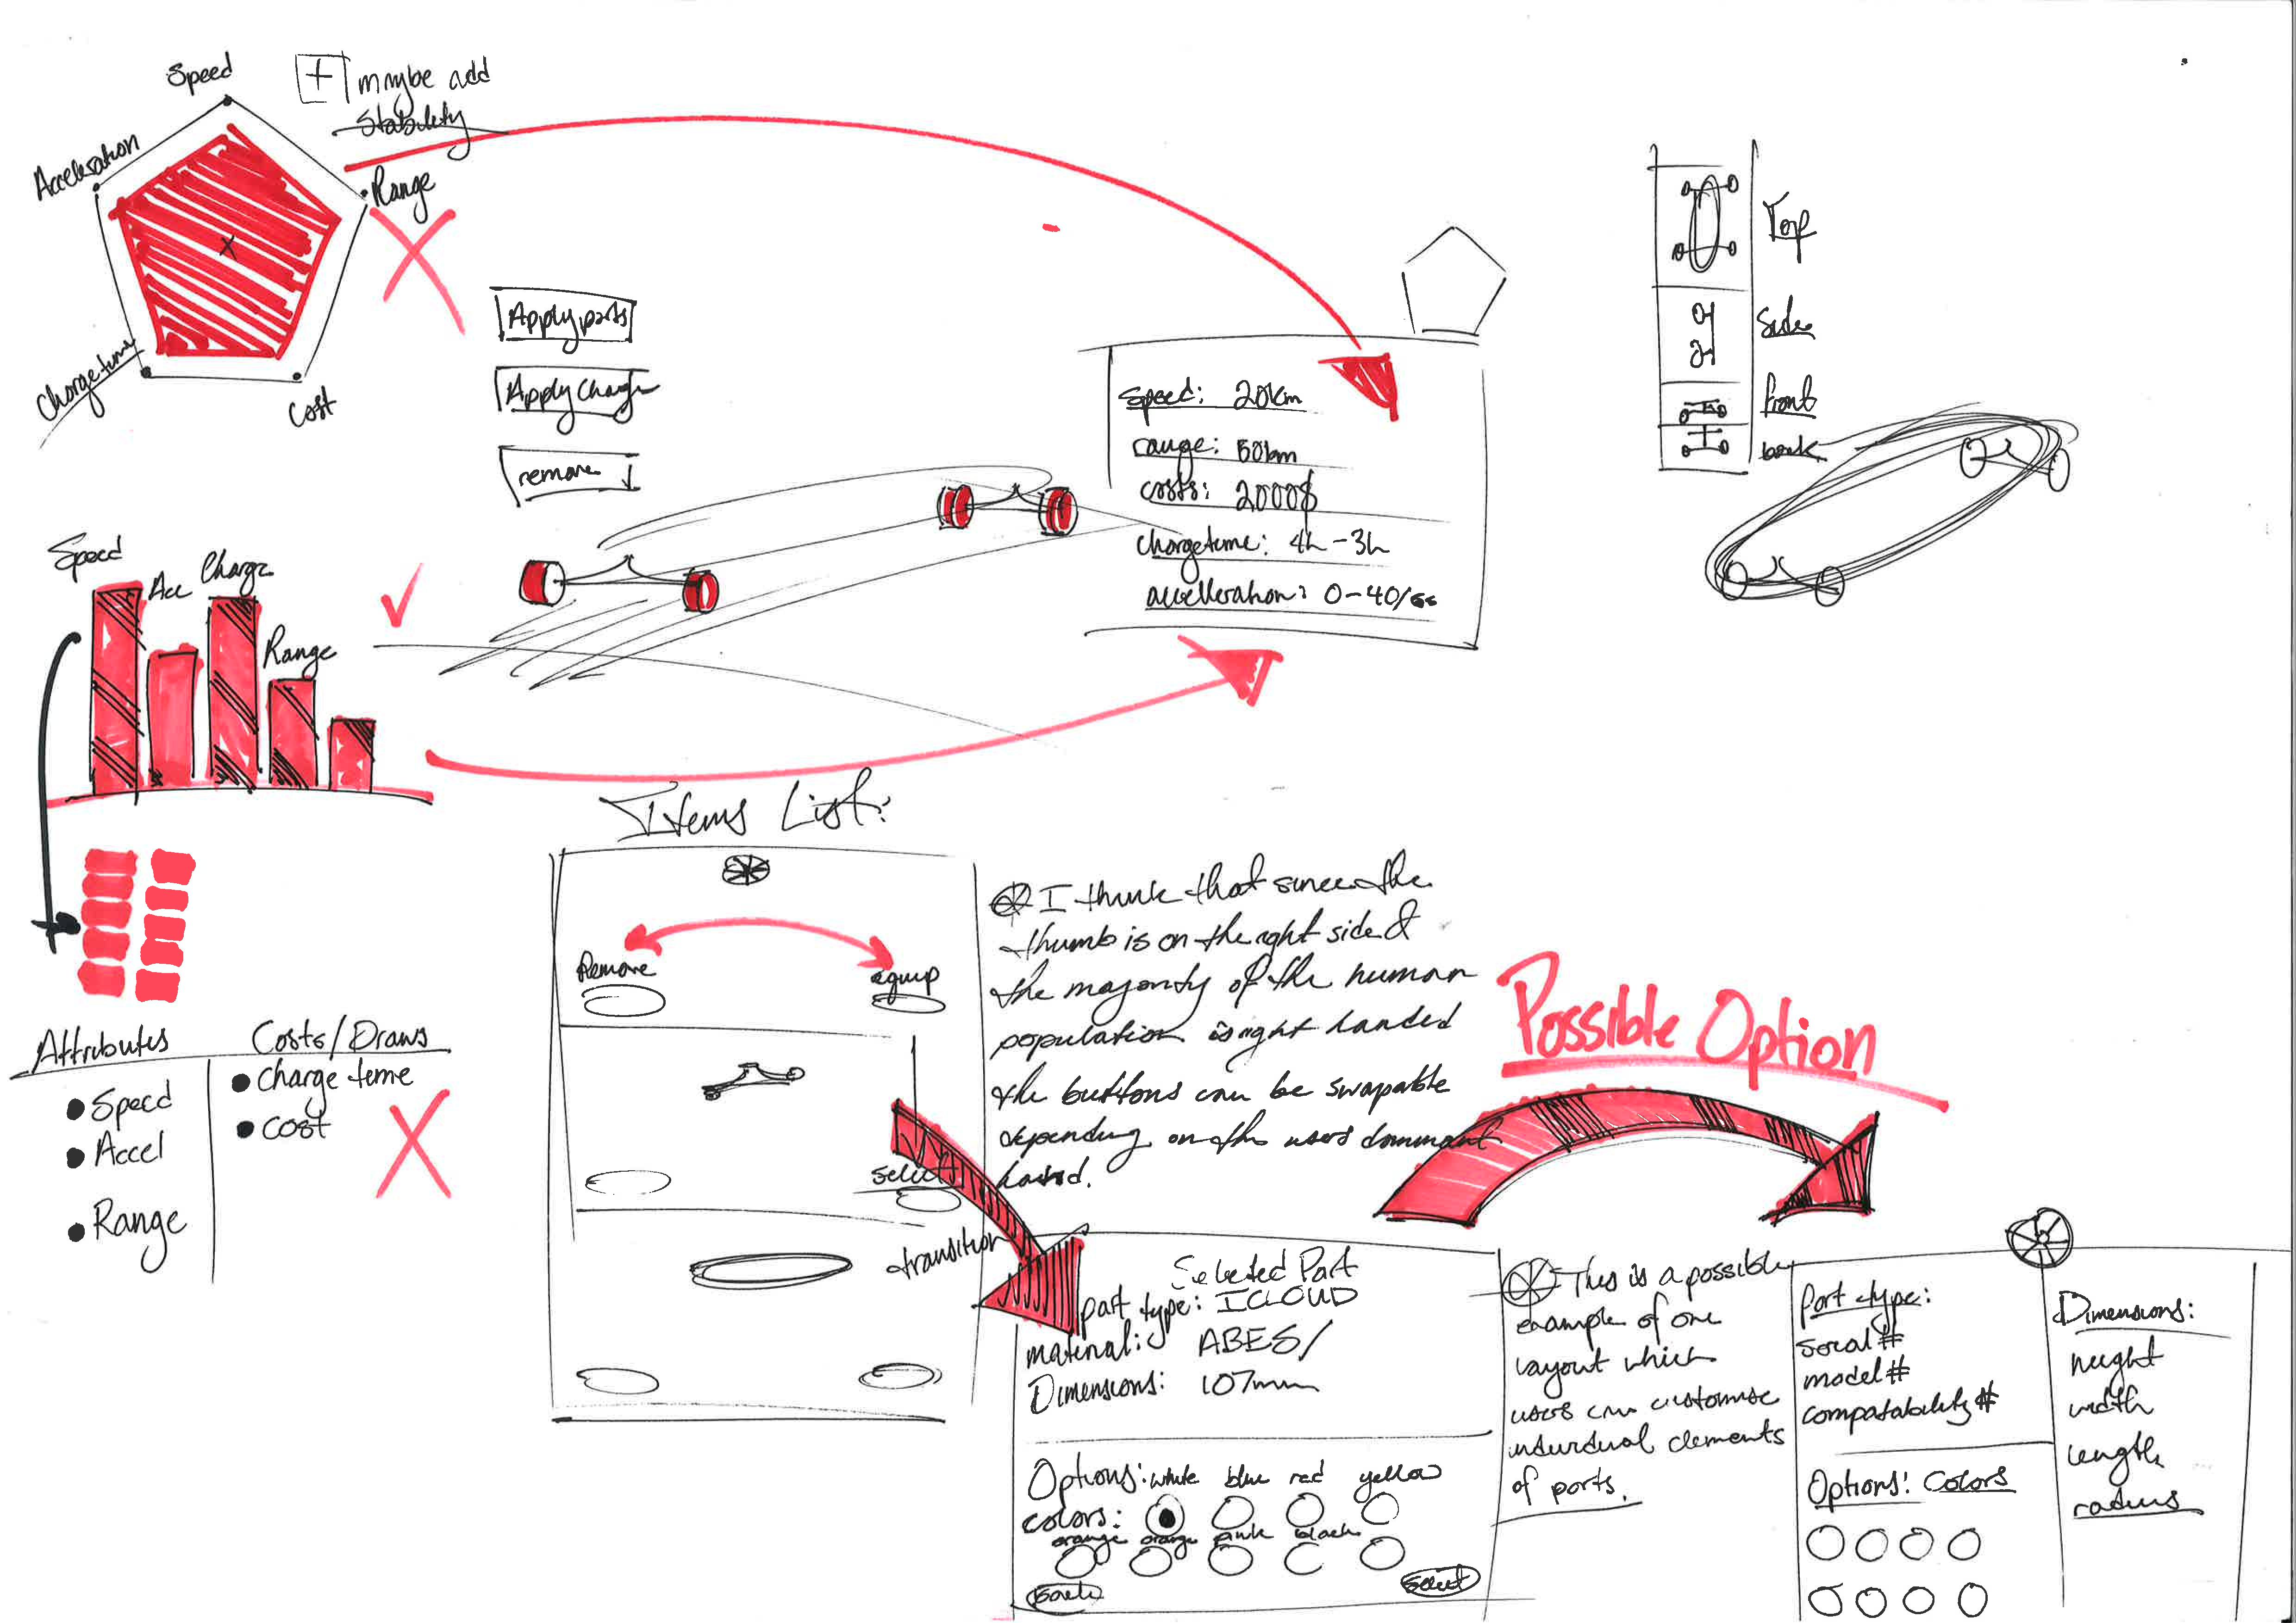 Speed
+ maybe add
stability
Acceleration
Range
Chargetime
Cost
Apply parts
Apply Charge
remove ↓
speed: 20km
range: 50km
costs: 2000$
chargetime: 4h - 3h
accelleration: 0-40/6s
Top
Side
front
back
Speed
Acc
Charge
Range
Attributes
• Speed
• Accel
• Range
Costs/Draws
• Charge time
• Cost
Items List:
Remove
equip
select
transition
I think that since the
thumb is on the right side &
the majority of the human
population is right handed
the buttons can be swapable
depending on the users dominant
hand.
Possible Option
Selected Part
part type: ICLOUD
material: ABES/
Dimensions: 107mm
Options: white blue red yellow
colors:
orange orange pink black
back
select
This is a possible
example of one
layout which
users can customise
individual elements
of parts.
Part type:
serial #
model #
compatability #
Options: Colors
Dimensions:
height
width
length
radius